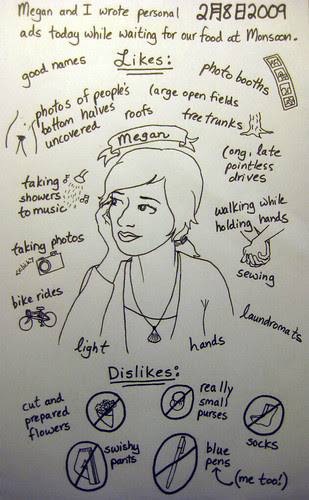 Megan and I wrote personal 2月8日2009
ads today while waiting for our food at Monsoon.
Likes:
good names
photo booths
photos of people's
bottom halves
uncovered
roofs
large open fields
free trunks
Megan
long, late
pointless
drives
taking
showers
to music
walking while
holding hands
taking photos
click!
sewing
bike rides
laundromats
light
hands
Dislikes:
cut and
prepared
flowers
really
small
purses
socks
swishy
pants
blue
pens
(me too!)